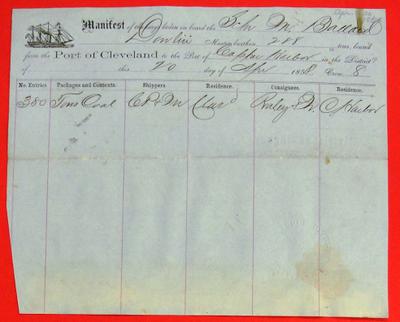 Manifest of on board the Sch M. Ballard
Tomlin Master, burthen 208 tons, bound
from the Port of Cleveland to the Port of Copper Harbor in the District
of this 20 day of Apr 185 Crew 8
No. Entries Packages and Contents. Shippers Residence. Consignees. Residence.
380 Tons Coal C P & M Clevd & M. C Harbor